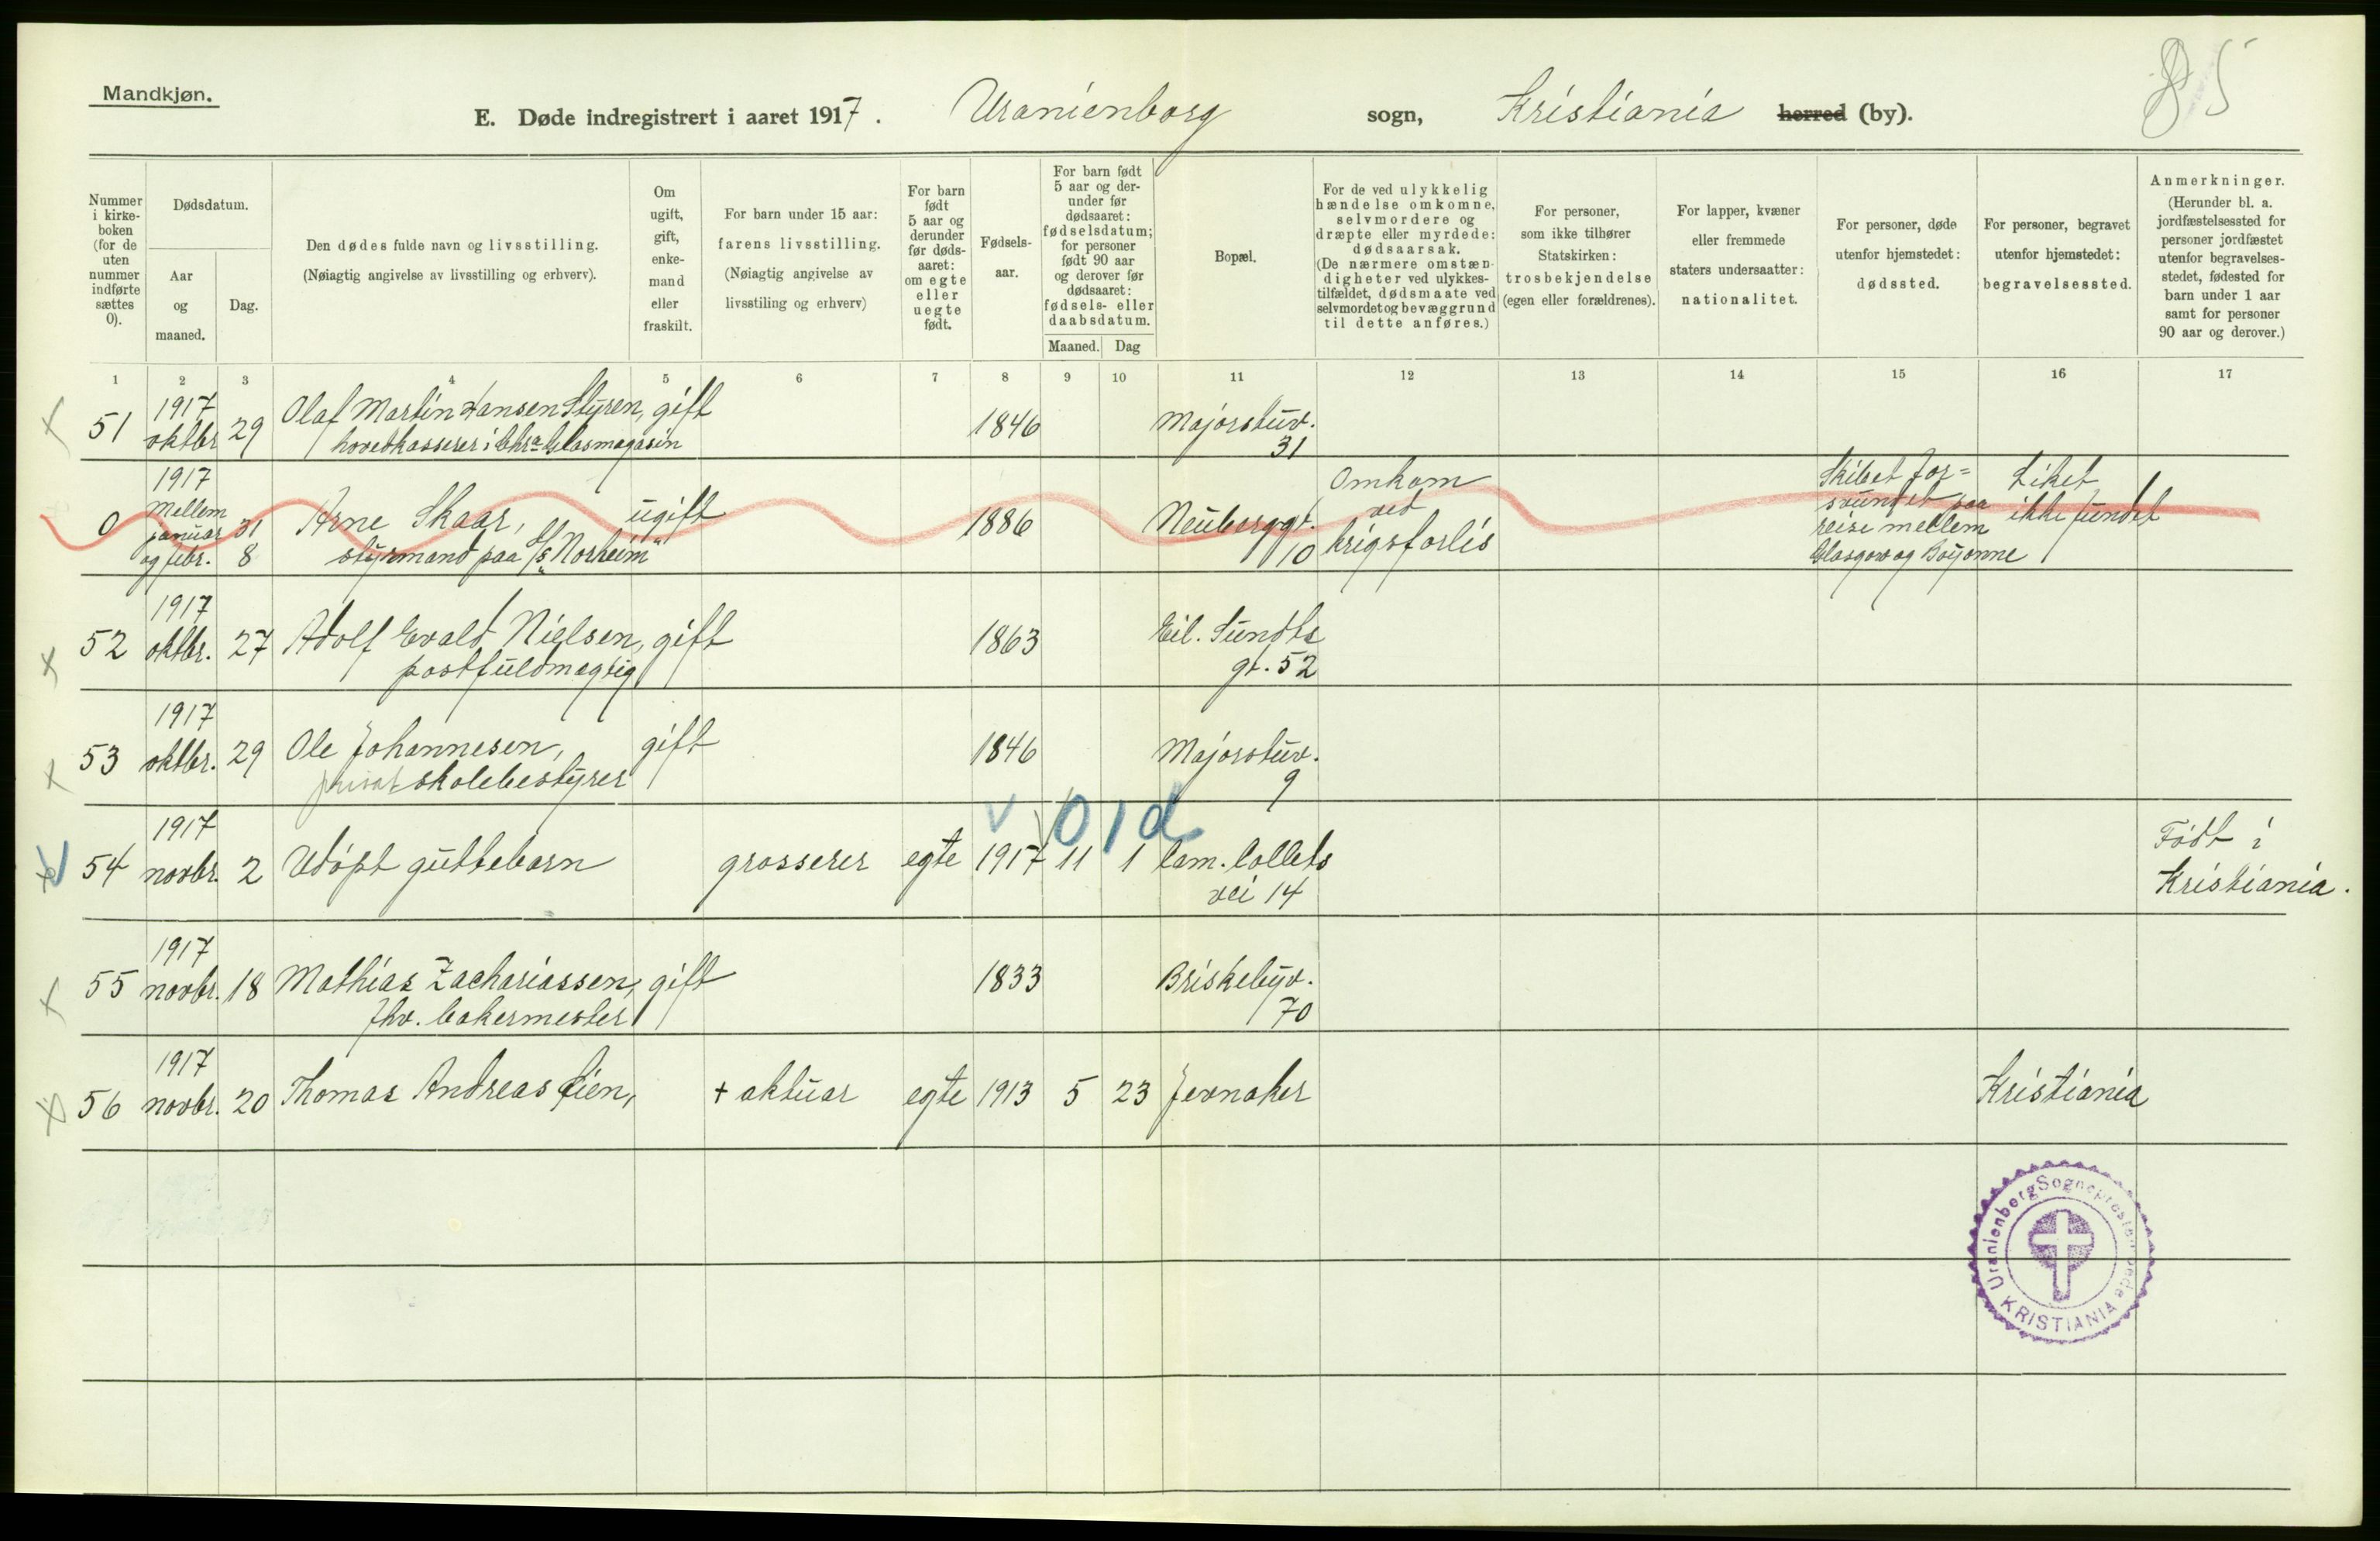 Mandkjøn.
85
E. Døde indregistrert i aaret 1917. Uranienborg sogn, Kristiania herred (by).
Nummer i kirke-boken (for de uten nummer indførte sættes 0).
Dødsdatum.
Aar og maaned.
Dag.
Den dødes fulde navn og livsstilling.
(Nøiagtig angivelse av livsstilling og erhverv).
Om ugift, gift, enke-mand eller fraskilt.
For barn under 15 aar:
farens livsstilling.
(Nøiagtig angivelse av
livsstiling og erhverv)
For barn født 5 aar og derunder før døds-aaret: om egte eller uegte født.
Fødsels-aar.
For barn født 5 aar og der-under før dødsaaret: fødselsdatum; for personer født 90 aar og derover før dødsaaret: fødsels- eller daabsdatum.
Maaned. Dag
Bopæl.
For de ved ulykkelig hændelse omkomne, selvmordere og dræpte eller myrdede: dødsaarsak. (De nærmere omstæn-digheter ved ulykkes-tilfældet, dødsmaate ved selvmordet og bevæggrund til dette anføres.)
For personer, som ikke tilhører Statskirken: trosbekjendelse (egen eller forældrenes).
For lapper, kvæner eller fremmede staters undersaatter: nationalitet.
For personer, døde utenfor hjemstedet: dødssted.
For personer, begravet utenfor hjemstedet: begravelsessted.
Anmerkninger.
(Herunder bl. a. jordfæstelsessted for personer jordfæstet utenfor begravelses-stedet, fødested for barn under 1 aar samt for personer 90 aar og derover.)
1 2 3 4 5 6 7 8 9 10 11 12 13 14 15 16 17
1917
51 oktbr 29 Olaf Martin Hansen Styren, gift 1846 Majorstuv.
hovedkasserer i Chra Glasmagasin 31
1917
Mellem
0 januar 31 Arne Skaar, ugift 1886 Neuberggt.
og febr. 8 styrmand paa S/S "Norheim" 10
Omkom
ved
krigsforlis
Skibet for=
svundet paa
reise mellem
Glasgow og Bayonne
Liket
ikke fundet
1917
52 oktbr. 27 Adolf Evald Nielsen, gift 1863 Eil. Sundts
postfuldmægtig gt. 52
1917
53 oktbr. 29 Ole Johannesen, gift 1846 Majorstuv.
privat skolebestyrer 9
v 01d
1917
54 novbr. 2 Udøpt guttebarn grosserer egte 1917 11 1 Cam. Colletts
vei 14
Født i
Kristiania.
1917
55 novbr. 18 Mathias Zachariassen, gift 1833 Briskebyv.
fhv. bakermester 70
1917
56 novbr. 20 Thomas Andreas Lien, + aktuar egte 1913 5 23 Jevnaker Kristiania
Uranienborg Sogneprestembede
KRISTIANIA